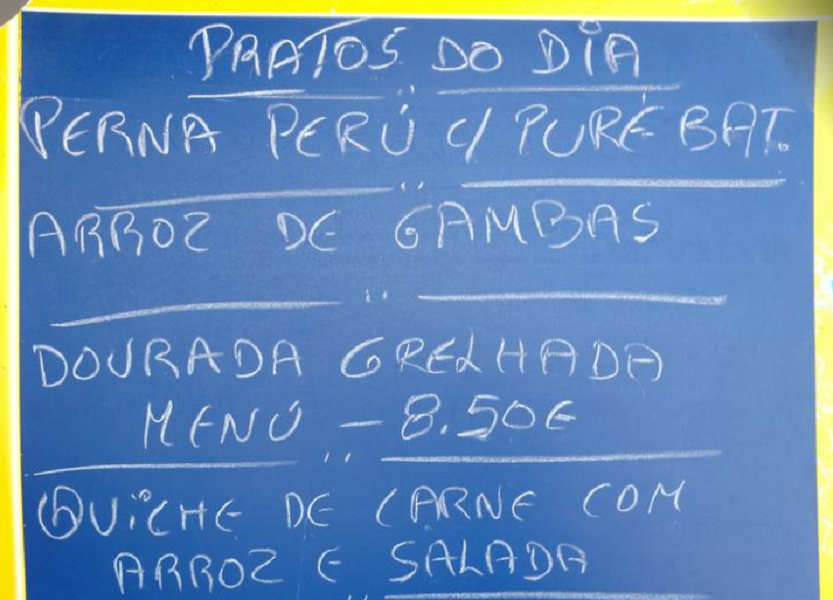 PRATOS DO DIA
PERNA PERÚ C/ PURÉ BAT.
ARROZ DE GAMBAS
DOURADA GRELHADA
MENÚ - 8.50€
QUICHE DE CARNE COM
ARROZ E SALADA